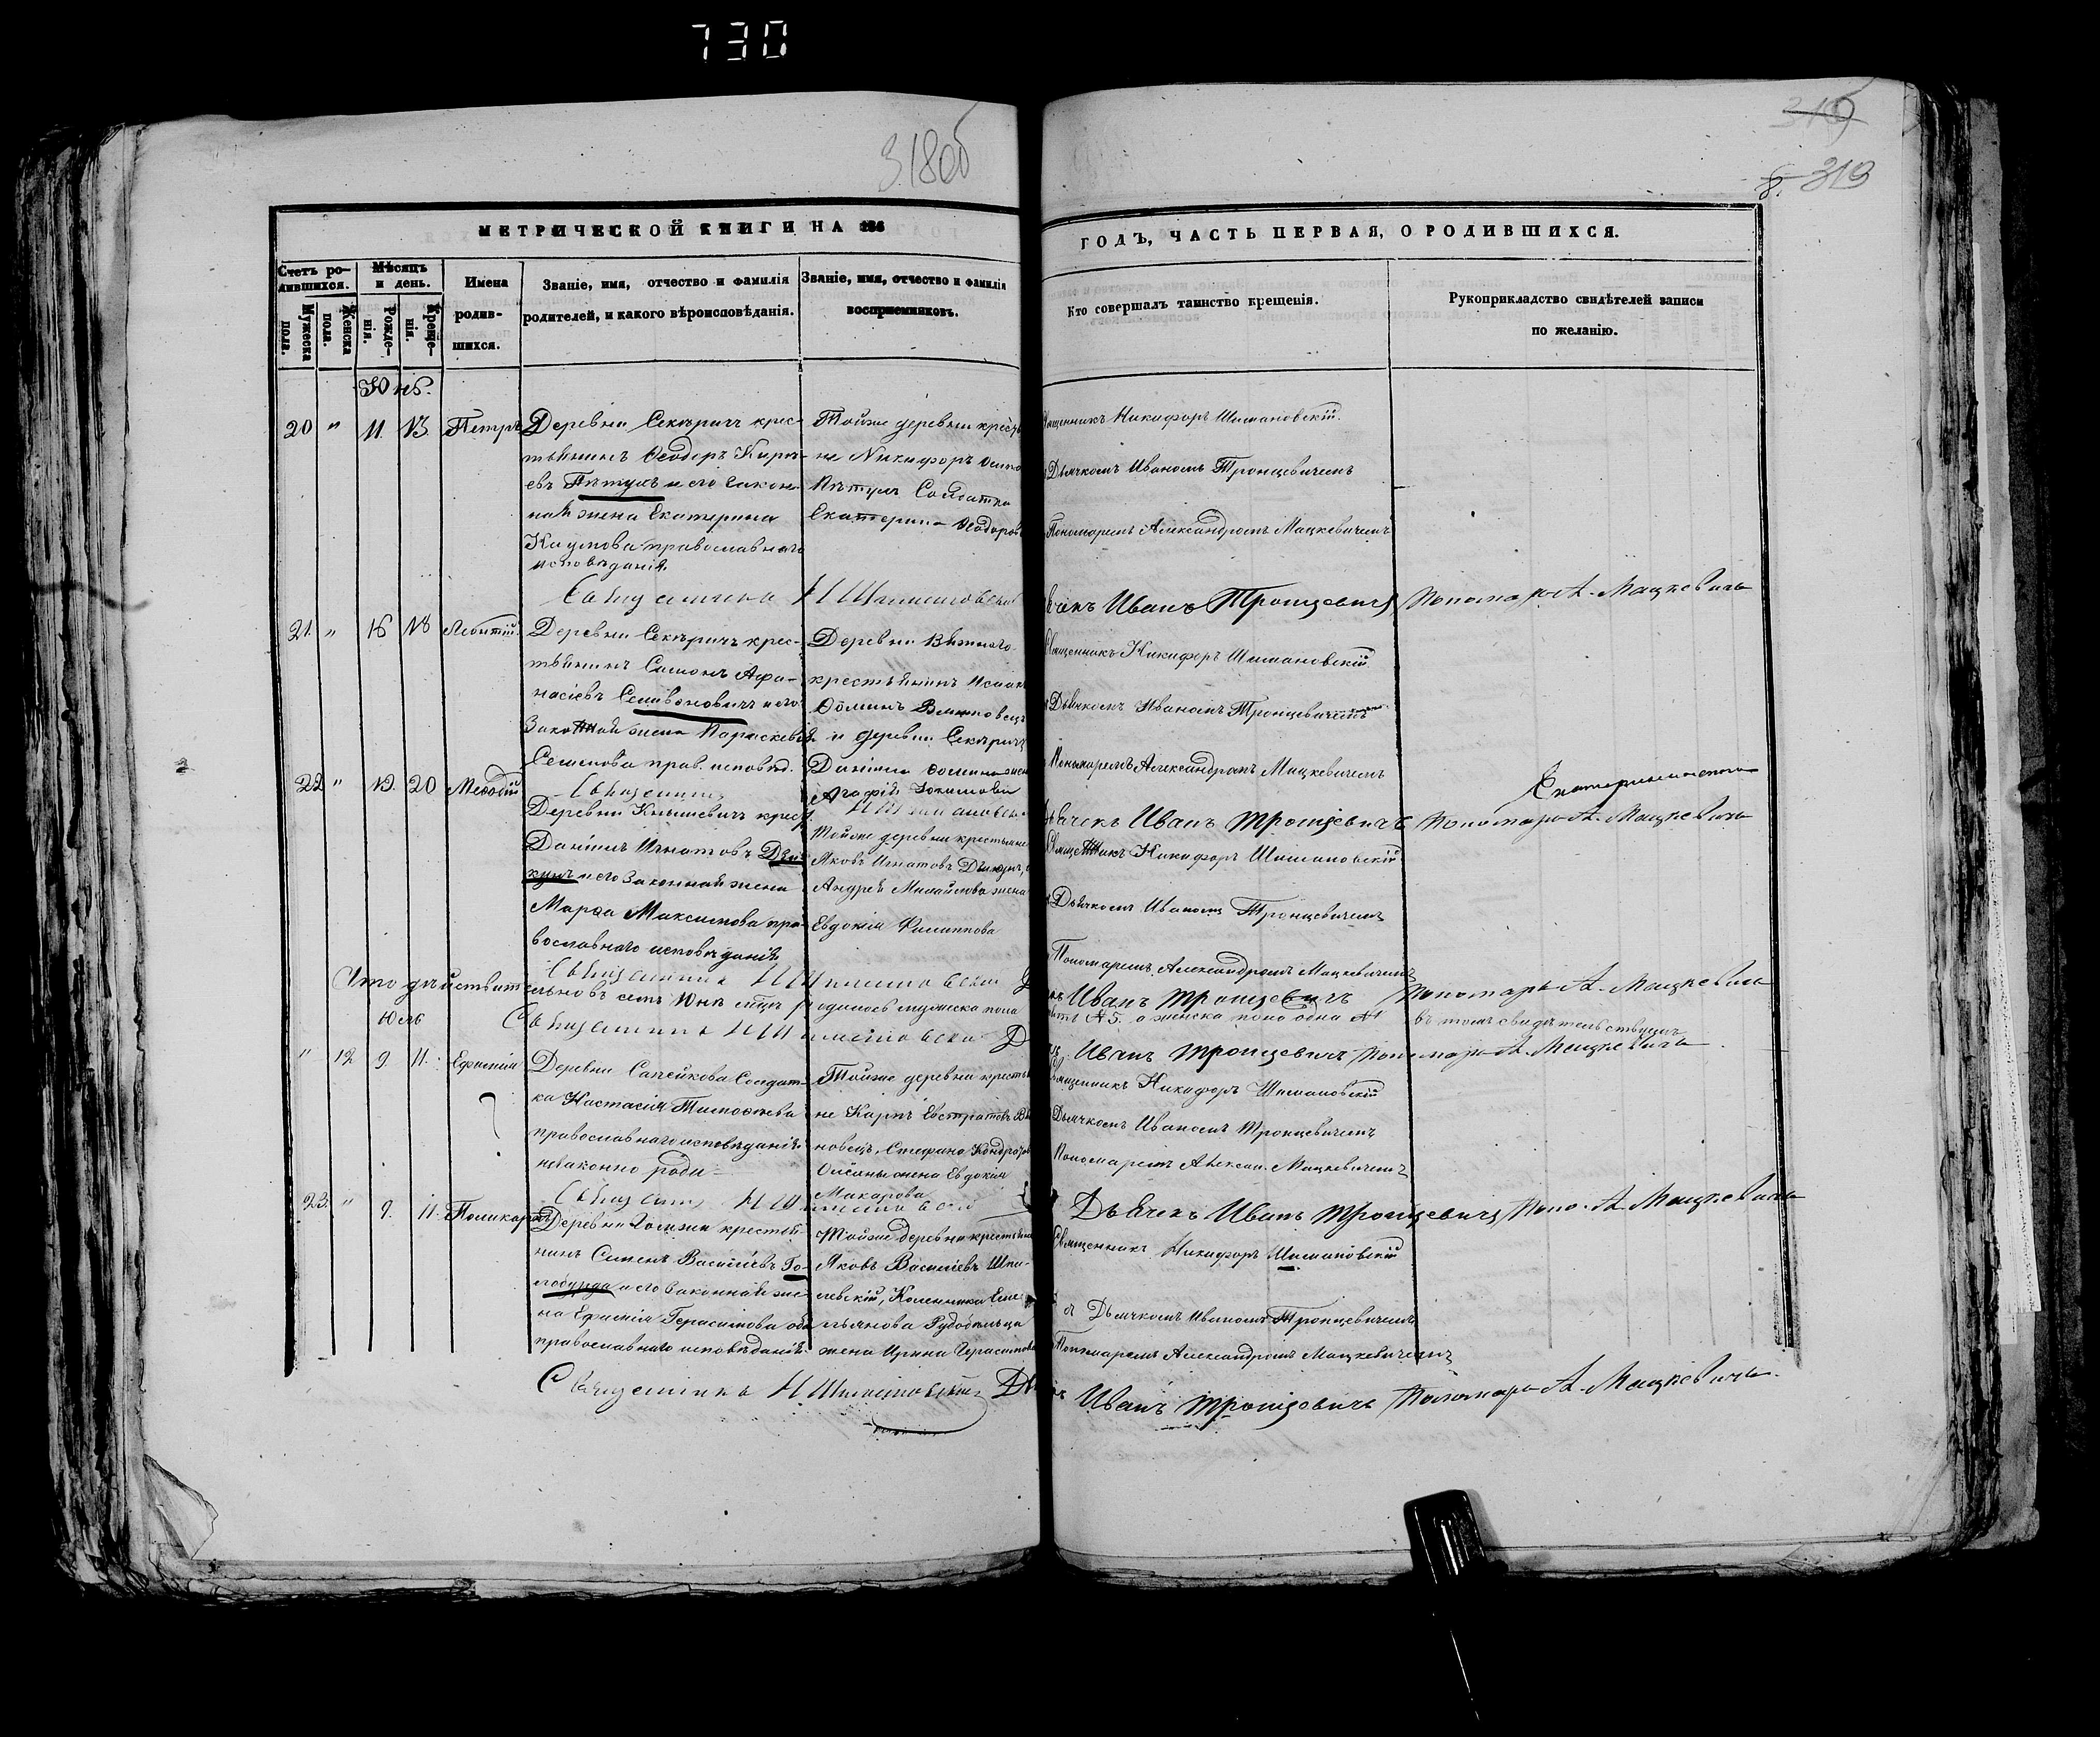 730
318об
319
8.
МЕТРИЧЕСКОЙ КНИГИ НА 186
ГОДЪ, ЧАСТЬ ПЕРВАЯ, О РОДИВШИХСЯ.
Счетъ ро-
дившихся.
Мужеска
пола.
Женска
пола.
Мѣсяцъ
и день.
Рожде-
нія.
Креще-
нія.
Имена
родив-
шихся.
Званіе, имя, отчество и фамилія
родителей, и какого вѣроисповѣданія.
Званіе, имя, отчество и фамилія
воспріемниковъ.
Кто совершалъ таинство крещенія.
Рукоприкладство свидѣтелей записи
по желанію.
Юнь.
20 " 11. 13. Петръ
Деревни Секѣричъ крес-
тьянинъ Ѳеодоръ
евъ Пѣтухъ и его закон-
ная жена Екатерина
Наумова православнаго
исповѣданія.
Тойже деревни крестья
не Никифоръ
Пѣтухъ Солдатка
Екатерина Ѳеодоров
Священникъ Никифоръ Шимановскій.
Дьячкомъ Иваномъ Тронцевичемъ
Пономаремъ Александромъ Мацкевичемъ
Священникъ Н Шимановскій
Иванъ Тронцевичъ Пономарь А. Мацкевичь
21. " 16 18 Леонтій.
Деревни Секѣричъ крес-
тьянинъ Симонъ Афа-
насіевъ и его
Законная жена Параскевія
Семенова прав. исповѣд.
Деревни
крестьянинъ
Ѳоминъ
и деревни Секѣричъ
Даніила Ѳомина жена
Агафія
Священникъ Никифоръ Шимановскій.
Дьячкомъ Иваномъ Тронцевичемъ
Пономаремъ Александромъ Мацкевичемъ
Священникъ Н Шимановскій
Дьячекъ Иванъ Тронцевичъ Пономарь А. Мацкевичь
22 " 19. 20 Меѳодій
Деревни Кнышевичъ крест
Даніилъ Игнатовъ Дзю-
кунъ и его законная жена
Марѳа Максимова пра-
вославнаго исповѣданія
Тойже деревни крестьяне
Яковъ Игнатовъ
Андрея Михайлова жена
Евдокія Филиппова
Священникъ Никифоръ Шимановскій
Дьячкомъ Иваномъ Тронцевичемъ
Пономаремъ Александромъ Мацкевичемъ
Священникъ Н Шимановскій
Иванъ Тронцевичъ Пономарь А. Мацкевичь
Что дѣйствительно въ семъ Юнѣ мцѣ родилось мужеска пола
№ 5. а женска пола одна №
въ томъ свидѣтельствуемъ
Юль
Священникъ Н Шимановскій
Иванъ Тронцевичъ Пономарь А. Мацкевичь
" 12 9. 11. Ефимія
Деревни Сапейкова Солдат-
ка Настасія Тимоѳеева
православнаго исповѣданія
незаконно роди-
Тойже деревни крестья
не Карпъ Евстратовъ
новецъ, Стефана Кондратов
жена Евдокія
Макарова
Священникъ Никифоръ Шимановскій
Дьячкомъ Иваномъ Тронцевичемъ
Пономаремъ Алексан. Мацкевичемъ
Дьячекъ Иванъ Тронцевичъ Поно. А. Мацкевичь
23. " 9. 11. Поликарпъ
Деревни крестья-
нинъ Симеонъ Василіевъ Го-
лобурда и его законная же-
на Ефимія Герасимова оба
православнаго исповѣданія.
Тойже деревни крестьяни
Яковъ Василіевъ Шпи-
левскій, Еме-
льянова Рудобельца
жена Ирина Герасимова
Священникъ Никифоръ Шимановскій
съ Дьячкомъ Иваномъ Тронцевичемъ
Пономаремъ Александромъ Мацкевичемъ
Священникъ Н Шимановскій
Иванъ Тронцевичъ Пономарь А. Мацкевичь.